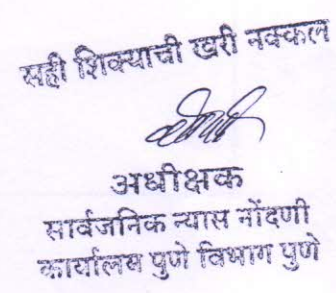 सही शिक्याची खरी नक्कल
अधीक्षक
सार्वजनिक न्यास नोंदणी
कार्यालय पुणे विभाग पुणे